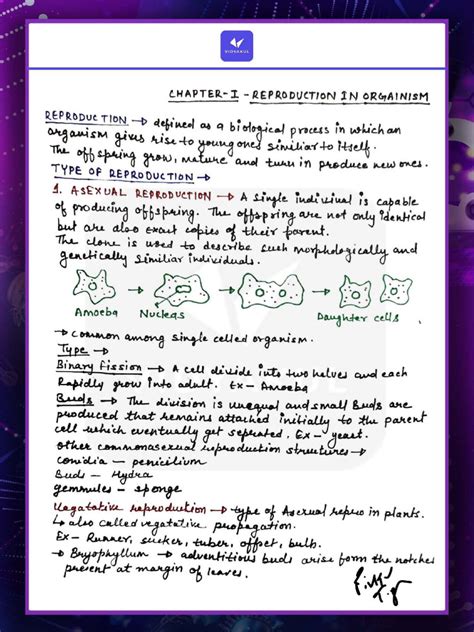 VIDYAKUL
CHAPTER-I - REPRODUCTION IN ORGAINISM
REPRODUCTION → defined as a biological process in which an
organism gives rise to young ones similiar to itself.
The offspring grow, mature and turn in produce new ones.
TYPE OF REPRODUCTION →
1. ASEXUAL REPRODUCTION → A single indiviual is capable
of producing offspring. The offspring are not only identical
but are also exact copies of their parent.
The clone is used to describe such morphologically and
genetically similiar individuals.
Amoeba Nucleas Daughter cells
→ common among single celled organism.
Type →
Binary Fission → A cell divide into two halves and each
Rapidly grow into adult. Ex - Amoeba
Buds → The division is unequal and small Buds are
produced that remains attached initially to the parent
cell which eventually get seperated, Ex - yeast.
other common asexual reproduction structures →
conidia - penicilium
Buds - Hydra
gemmules - sponge
Vegatative reproduction → type of Asexual repro in plants.
↳ also called vegatative propagation.
Ex - Runner, sucker, tuber, offset, bulb.
→ Bryophyllum → adventitious buds arise form the notches
present at margin of leaves.